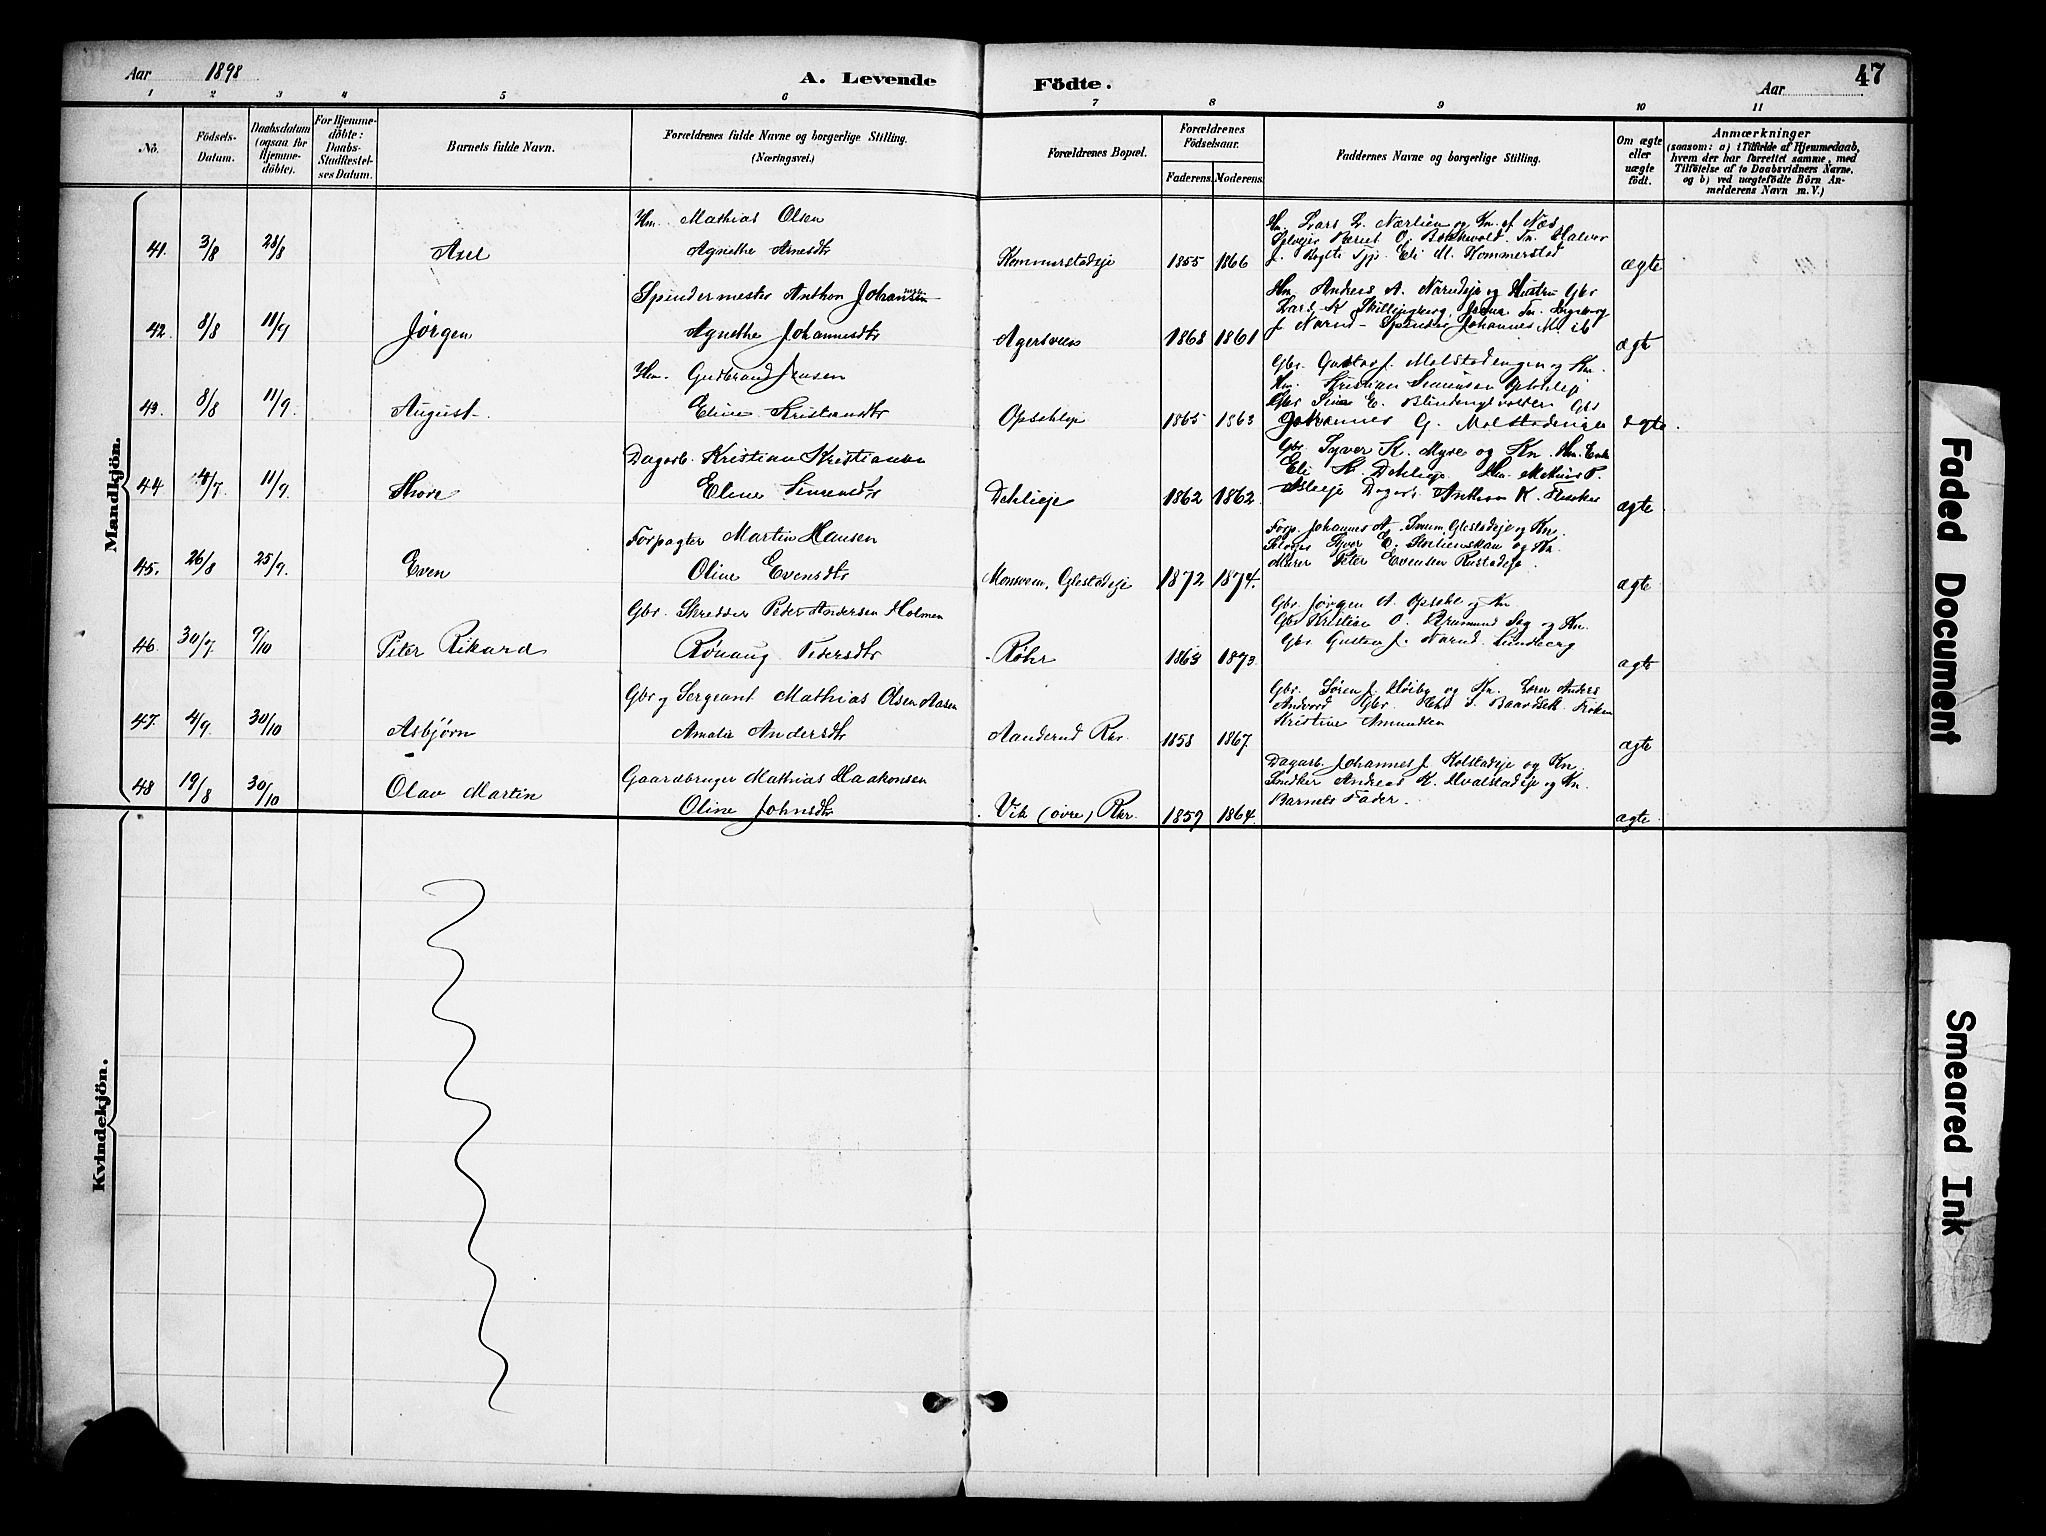 Aar 1898
A. Levende
Födte.
Aar
47
1 2 3 4 5 6 7 8 9 10 11
Nö.
Födsels-
Datum.
Daabsdatum
(ogsaa for
Hjemme-
döbte).
For Hjemme-
döbte:
Daabs-
Stadfæstel-
ses Datum.
Barnets fulde Navn.
Forældrenes fulde Navne og borgerlige Stilling.
(Næringsvei.)
Forældrenes Bopæl.
Forældrenes
Födselsaar.
Faderens. Moderens.
Faddernes Navne og borgerlige Stilling.
Om ægte
eller
uægte
födt.
Anmærkninger
(saasom: a) i Tilfælde af Hjemmedaab,
hvem der har forrettet samme, med
Tilföielse af to Daabsvidners Navne,
og b) ved uægtefödte Börn An-
melderens Navn m. V.)
Mandkjön.
41. 3/8 28/8 Axel
Hm. Mathias Olsen
Agnethe Arnesdtr
Kommerstadeje 1855 1866
Hm. Lars L. Nærlien og Kn. af Næs
Halvor
Eli M. Kommerstad
ægte
42. 8/8 11/9 Jørgen
Spindermester Anthon Johansen
Agnethe Johannesdtr
Agersveen 1868 1861
Hm. Andreas A. Narudeje og Hustru Gbr
Lars K. Skillingberg,
J. Narud - Spinder Johannes M. ib
ægte
43. 8/8 11/9 August
Hm. Gudbrand Jensen
Eline Kristiansdtr
Opsaheje 1865 1863
Gbr. Gustav J. Molstadengen og Kn.
Hm. Kristian Simensen
Johannes G. Molstadengen
ægte.
44 4/7. 11/9 Thore
Dagarb. Kristian Kristiansen
Eline Simensdtr
Dehlieje 1862 1862
Gbr. Syver K. Myre og Kn. Hm. Enke
Eli K. Dehlieje Hm.
Dagarb. Anthon K.
ægte
45. 26/8 25/9. Even
Forpagter Martin Hansen
Oline Evensdtr
Monsveen, Glestadeje 1872 1874.
Forp. Johannes A. Glestadeje og Kn.
Syver E. og Kn.
Murer Peter Evensen Rustadeje
ægte
46. 30/7. 9/10 Peter Rikard
Gbr. Skredder Peder Andersen Holmen
Rønaug Pedersdtr
Røhr 1863 1873.
Gbr. Jørgen A. Opsahl og Kn
Gbr. Kristian O. og Kn.
Gbr Gustav J. Narud Lundberg
ægte
47. 4/9. 30/10 Asbjørn
Gbr og Sergeant Mathias Olsen Aasen
Amalie Andersdtr
Aanderud Rkr. 1858 1867.
Gbr. Søren J. Høiby og Kn. Lærer Anders
Gbr. Chr Frøken
Kristine Amundsen
ægte
48 19/8 30/10 Olav Martin
Gaardbruger Mathias Haakonsen
Oline Johnsdtr
Vik (øvre) Rkr. 1859 1864.
Dagarb. Johannes J. Kolstadeje og Kn.
Snedker Andreas K. Hvalstadeje og Kn.
Barnets Fader.
ægte
Kvindekjön.
Faded Document
Smeared Ink